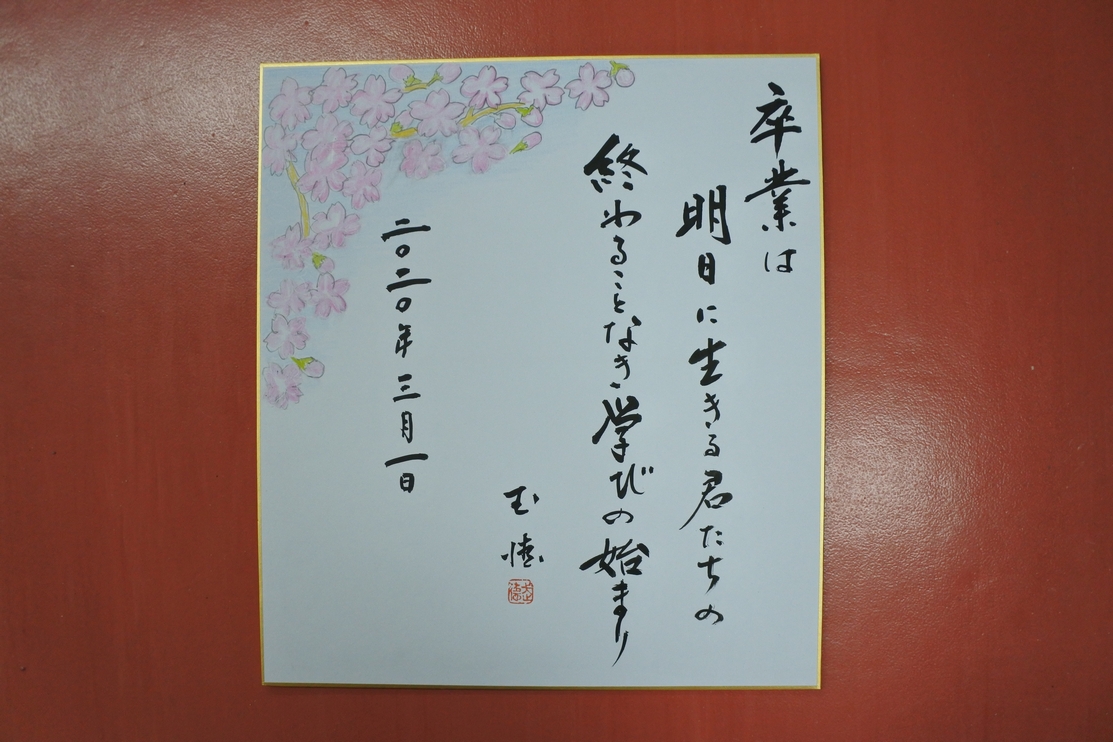 卒業は
明日に生きる君たちの
終わることなき学びの始まり
玉憓
二〇二〇年三月一日